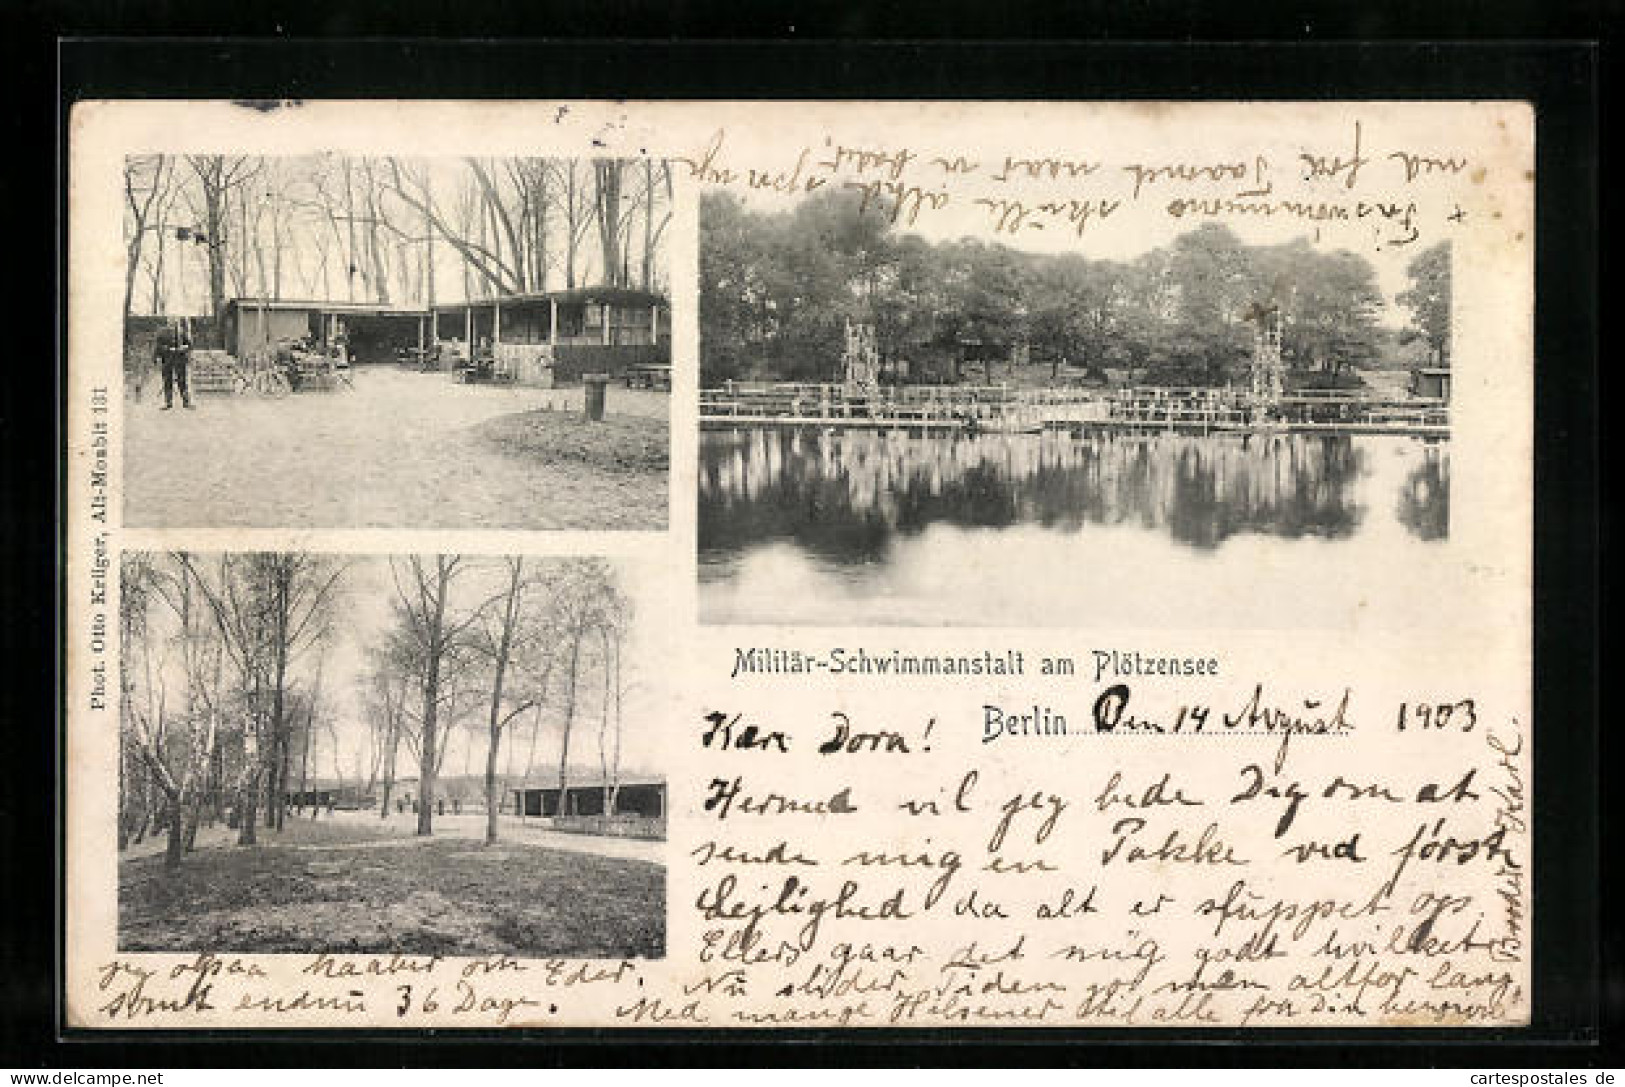 Phot. Otto Krüger, Alt-Moabit 131
Militär-Schwimmanstalt am Plötzensee
Berlin Den 14 August 1903
Kære Dora!
Hermed vil jeg bede Dig om at
sende mig en Pakke ved först
Lejlighed da alt er sluppet op.
Ellers gaar det mig godt hvilket
jeg ogsaa haaber om Eder.
Nu slider Tiden os men altfor lang
somt endnu 36 Dage.
Med mange Hilsener til alle fra Din
Broder Karl.